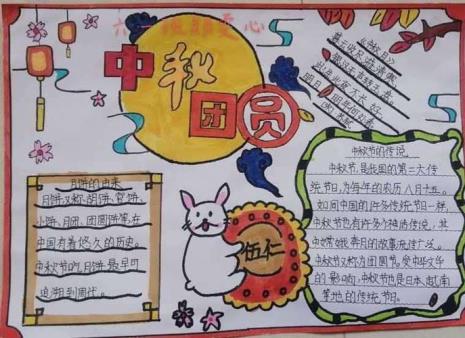 中秋
团圆
《中秋月》
暮云收尽溢清寒，
银汉无声转玉盘。
此生此夜不长好，
明月明年何处看
月饼的由来
月饼又称胡饼、宫饼、
小饼、月团、团圆饼等，在
中国有着悠久的历史。
中秋节吃月饼最早可
追溯到唐代。
伍仁
中秋节的传说
中秋节，是我国的第三大传
统节日，为每年的农历八月十五。
如同中国的许多传统节日一样，
中秋节也有许多个神话传说，其
中嫦娥奔月的故事流传广泛。
中秋节又称为团圆节。受中华文化
的影响，中秋节也是日本、越南
等地的传统节日。